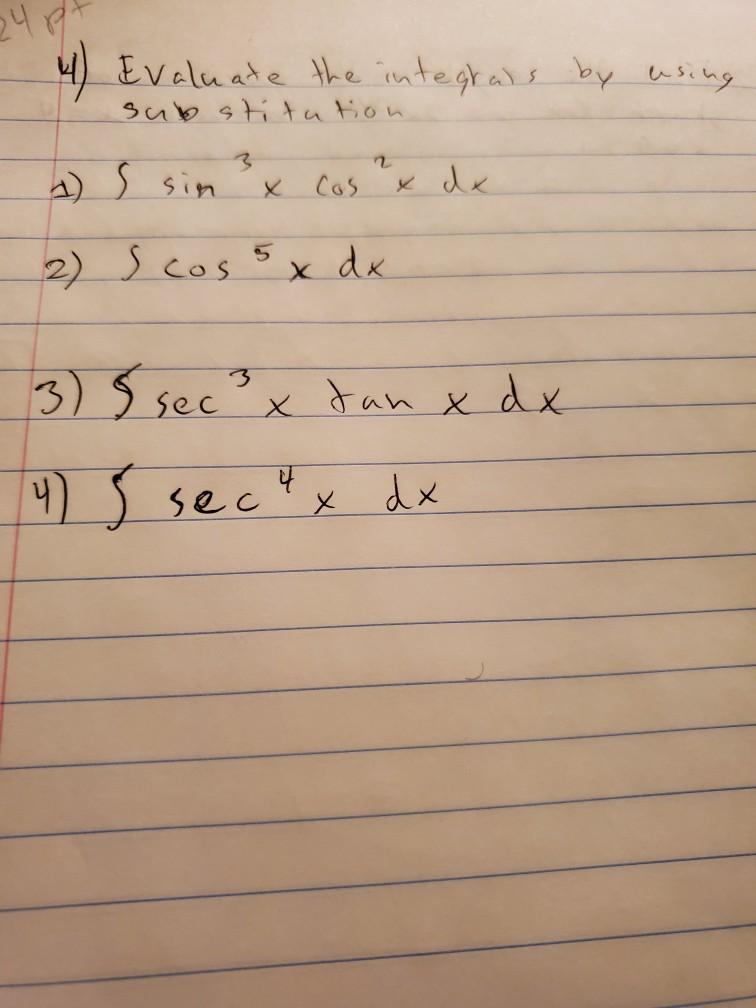 24 pt
4) Evaluate the integrals by using
substitution
1) ∫ sin³ x cos² x dx
2) ∫ cos⁵ x dx
3) ∫ sec³ x tan x dx
4) ∫ sec⁴ x dx